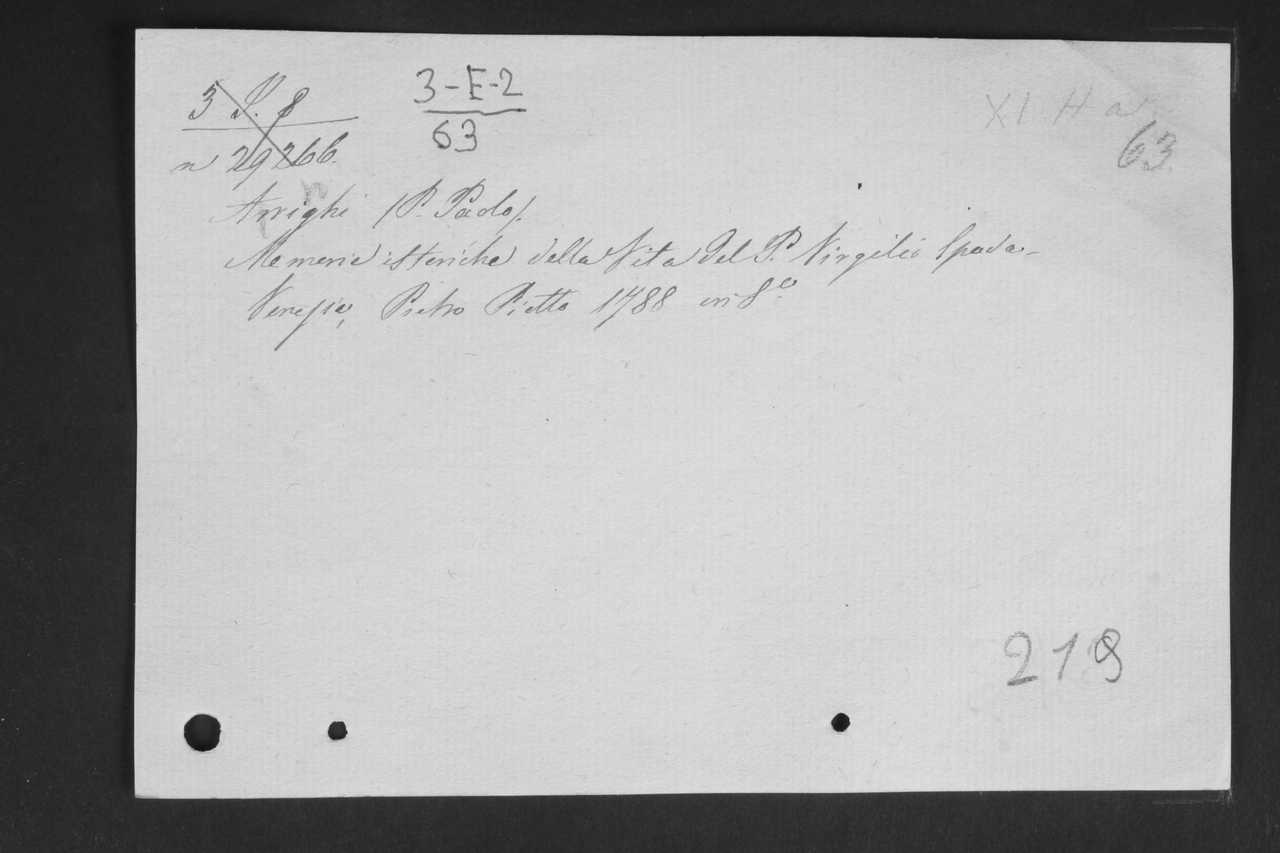 3 S. 8
n 29266.
3-E-2
63
XI H a
63
Arrighi (P. Paolo).
Memorie istoriche della Vita del P. Virgilio Spada -
Venezia, Pietro Piotto 1788 in 8.o
219